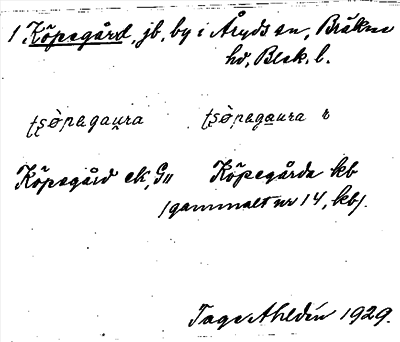 1 Köpegård, jb, by i Åryds sn, Bräkne
hd, Blek. l.
ƫʂòpagau̯ra ƫʂòpagau̯ra
Köpegård ek, G11 Köpegårda kb
(gammalt nr 14, kb).
Tage Ahldén 1929.